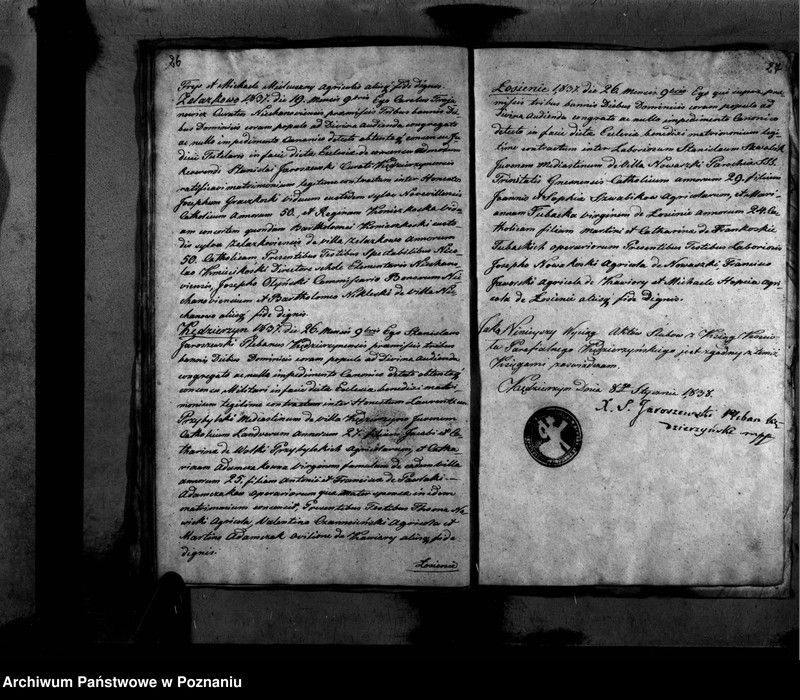 26
Frys et Michaele Mielcuszny Agricolis aliisq fide dignis.
Zelazkowo 1837. die 19. Mensis 9bris Ego Carolus Troja
nowicz Curatus Niechanoviensis praemissis Tribus bannis Die
bus Dominicis coram populo ad Divina Audienda congregato
ac nullo impedimento Canonico detecto obtento consensu Ju
dicii Tutelaris in facie dictae Ecclesiae de consensu admodum
Reverendi Stanislai Jaroszewski Curati Kędzierzynensis
ratificavi matrimonium legitime contractum inter Honestos
Josephum viduum custodem sylvae
Catholicum Annorum 50. et Reginam Konieczkoska vidu
am consortem quondam Bartholomei Konieczkoski custo
dis sylvae Zelazkoviensis de villa Zelazkowo Annorum
50. Catholicam Presentibus Testibus Spectabilibus Nico
lao Directore scholae Elementaris Niechano
viensis, Josepho Commissario Bonorum Nie
chanoviensium et Bartholomeo de villa Nie
chanowo aliisq fide dignis.
Kędzierzyn 1837. die 26. Mensis 9bris Ego Stanislaus
Jaroszewski Plebanus Kędzierzynensis praemissis tribus
bannis Diebus Dominicis coram populo ad Divina Audienda
congregato ac nullo impedimento Canonico detecto obtento
consensu Militari in facie dictae Ecclesiae benedixi matri
monium legitime contractum inter Honestum Laurentium
Przybylski Mediastinum de villa Kędzierzyno Juvenem
Catholicum Annorum 27. filium Jacobi et Ca
tharinae de Wolki Przybylskich Agricolarum, et Catha
rinam Adamczakowna virginem famulam de eadem villa
annorum 25. filiam Antonii et Franciscae de Pawlaki
Adamczakow operariorum quae mater sponsae in idem
matrimonium consensit, Presentibus Testibus
Agricola, Valentino Agricola et
Martino Adamczak ovilione de aliisq fide
dignis.
Łosienie
27
Łosienie 1837. die 26. Mensis 9bris Ego qui supra prae
missis tribus bannis Diebus Dominicis coram populo ad
Divina Audienda congregato ac nullo impedimento Canonico
detecto in facie dictae Ecclesiae benedixi matrimonium legi
time contractum inter Laboriosum Stanislaum
Juvenem Mediastinum de Villa Nowaszki Parochiae SSS.
Trinitatis Gnesnensis Catholicum annorum 29. filium
Joannis et Sophiae Szwabikow Agricolarum, et Mari
annam virginem de Łosienie Annorum 24. Ca
tholicam filiam Martini et Catharinae de
operariorum Presentibus Testibus Laboriosis
Josepho Nowakoski Agricola de Nowaszki, Francisco
Jaworski Agricola de et Michaele Agri
cola de Łosienie aliisq fide Dignis.
Jako Niniejszy Wyciąg Aktów Ślubów z Xsięg Kościo
ła Parafialnego Kędzierzyńskiego jest zgodny z temiż
Xsięgami zaświadczam.
Kędzierzyn Dnia 8go Stycznia 1838.
X. S. Jaroszewski Pleban Kę
dzierzyński mpp
Archiwum Państwowe w Poznaniu